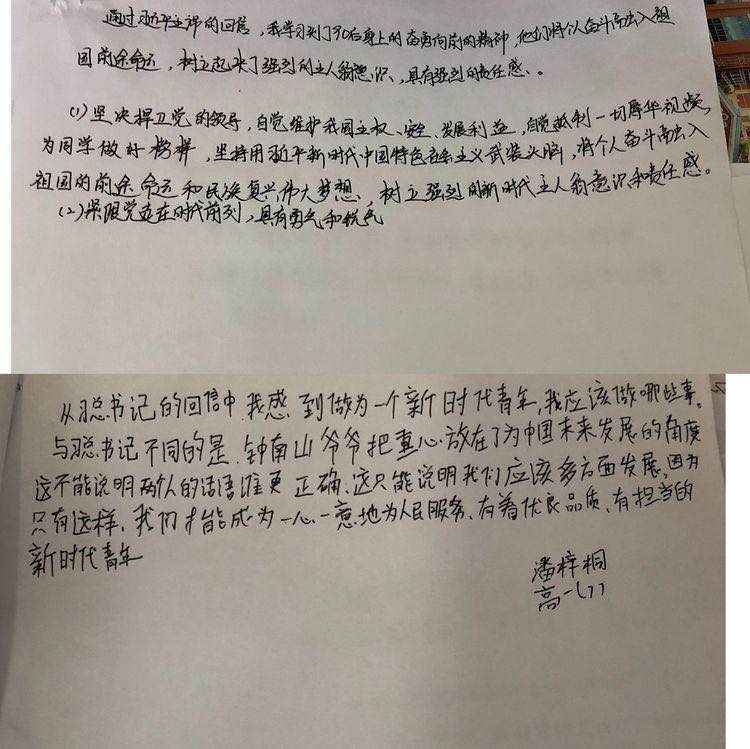 通过习近平主席的回信，我学习到了90后身上的奋勇向前的精神，他们将个人奋斗融入祖
国前途命运，树立起了强烈的主人翁意识，具有强烈的责任感。
(1)坚决捍卫党的领导，自觉维护我国主权、安全、发展利益，自觉抵制一切辱华视频，
为同学做好榜样，坚持用习近平新时代中国特色社会主义武装头脑，将个人奋斗融入
祖国的前途命运和民族复兴伟大梦想，树立强烈的新时代主人翁意识和责任感。
(2)紧跟党走在时代前列，具有勇气和锐气
从习总书记的回信中我感到做为一个新时代青年，我应该做哪些事。
与习总书记不同的是钟南山爷爷把重心放在了为中国未来发展的角度
这不能说明两个人的话语谁更正确、这只能说明我们应该多方面发展，因为
只有这样，我们才能成为一心一意地为人民服务、有着优良品质、有担当的
新时代青年
潘梓桐
高一(7)